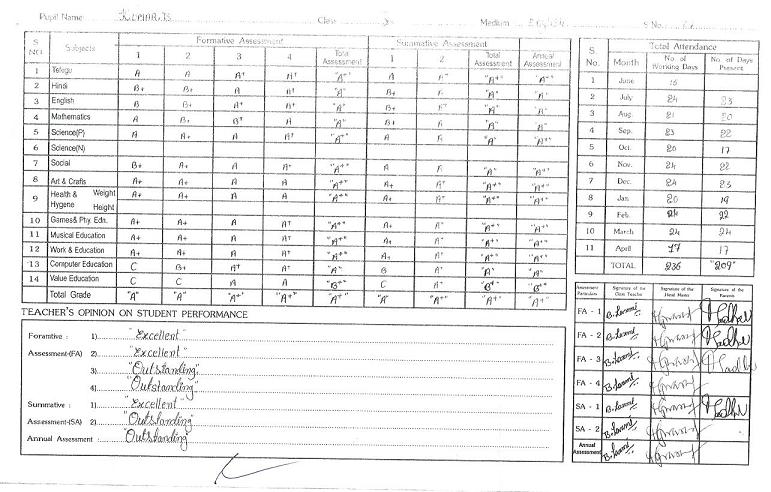 Pupil Name KUMAR.B Class 3 Medium S No.
S NO. Subjects Formative Assessment Summative Assessment Annual Assessment
1 2 3 4 Total Assessment 1 2 Total Assessment
1 Telugu A A A+ A+ "A+" A "A+" "A+"
2 Hindi B+ A+ A A "A" B+ "A" "A"
3 English B B+ A+ B+ "A" B+ "A" "A"
4 Mathematics A B+ B+ A "A" B+ "A" "A"
5 Science(P) A B+ A A+ "A+" A+ "A" "A+"
6 Science(N)
7 Social B+ A+ A A+ "A+" A "A" "A+"
8 Art & Crafts A+ A+ A A "A+" A+ "A+" "A+"
9 Health & Hygene Weight Height A+ A+ A A "A+" A+ "A+" "A+"
10 Games& Phy. Edn. A+ A+ A A+ "A+" A+ "A+" "A+"
11 Musical Education A+ A+ A A "A+" A+ "A+" "A+"
12 Work & Education A+ A+ A A "A+" A+ "A+" "A+"
13 Computer Education C B+ A+ A "A" B "A" "A"
14 Value Education C C A A "B+" C "B+" "B+"
Total Grade "A" "A" "A+" "A+" "A+" "A" "A+" "A+" "A+"
TEACHER'S OPINION ON STUDENT PERFORMANCE
Foramtive : 1) "Excellent"
Assessment-(FA) 2) "Excellent"
3) "Outstanding"
4) "Outstanding"
Summative : 1) "Excellent"
Assessment-(SA) 2) "Outstanding"
Annual Assessment : "Outstanding"
S. No. Month Total Attendance
No. of Working Days No. of Days Present
1 June 16
2 July 24 23
3 Aug. 21 20
4 Sep. 23 22
5 Oct. 20 17
6 Nov. 24 22
7 Dec. 24 23
8 Jan. 20 19
9 Feb. 24 22
10 March 24 24
11 April 17 17
TOTAL 236 "209"
Assessment Particulars Signature of the Class Teacher Signature of the Head Master Signature of the Parents
FA - 1 B.Laxmi
FA - 2 B.Laxmi
FA - 3 B.Laxmi
FA - 4 B.Laxmi
SA - 1 B.Laxmi
SA - 2 B.Laxmi
Annual Assessment B.Laxmi